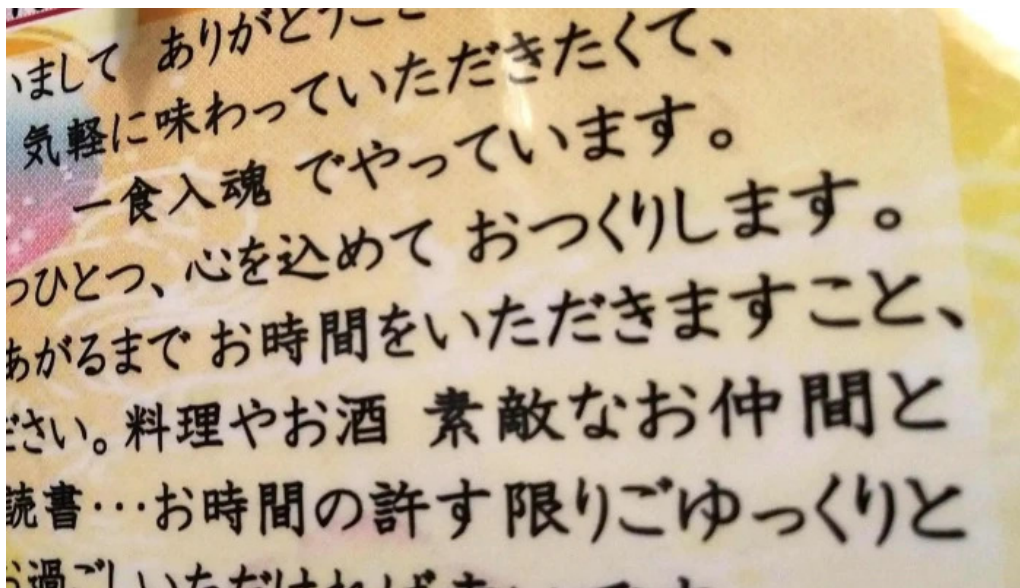 いまして ありがとうござ
気軽に味わっていただきたくて、
一食入魂 でやっています。
つひとつ、心を込めて おつくりします。
あがるまで お時間をいただきますこと、
ださい。料理やお酒 素敵なお仲間と
読書・・・お時間の許す限りごゆっくりと
お過ごしいただければ幸いです